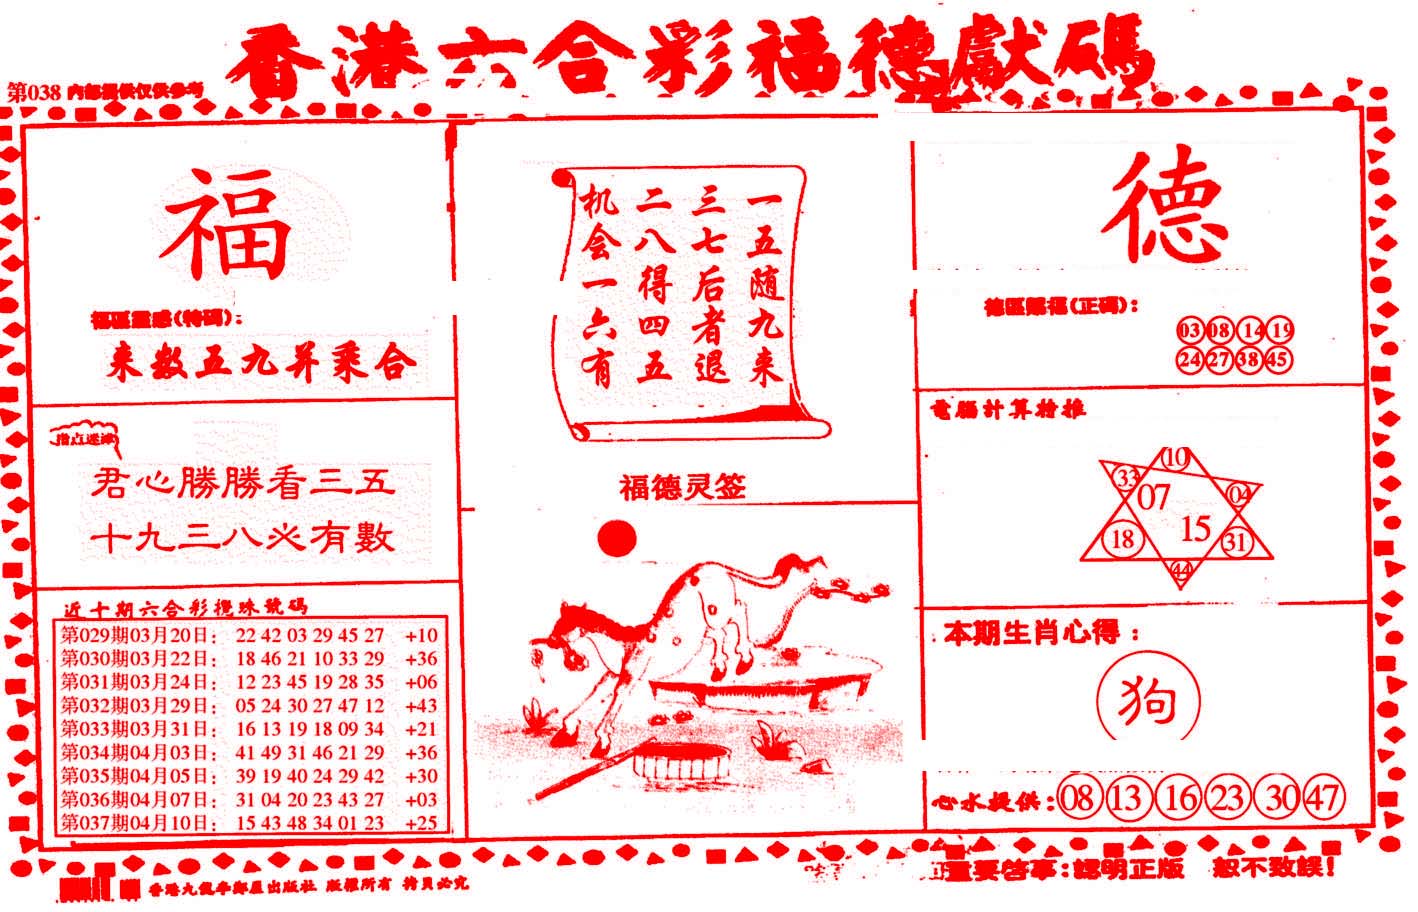 香港六合彩福德獻碼
第038 內部提供仅供参考
福
福區靈感(特碼):
来数五九并乘合
指点迷津
君心勝勝看三五
十九三八必有數
近十期六合彩攪珠號碼
第029期03月20日: 22 42 03 29 45 27 +10
第030期03月22日: 18 46 21 10 33 29 +36
第031期03月24日: 12 23 45 19 28 35 +06
第032期03月29日: 05 24 30 27 47 12 +43
第033期03月31日: 16 13 19 18 09 34 +21
第034期04月03日: 41 49 31 46 21 29 +36
第035期04月05日: 39 19 40 24 29 42 +30
第036期04月07日: 31 04 20 23 43 27 +03
第037期04月10日: 15 43 48 34 01 23 +25
一五随九来
三七后者退
二八得四五
机会一六有
福德灵签
德
德區賜福(正碼):
03 08 14 19
24 27 38 45
電腦計算特推
10
33 07 04
18 15 31
44
本期生肖心得:
狗
心水提供: 08 13 16 23 30 47
版權所有 拷貝必究
重要啓事:認明正版 恕不致誤!